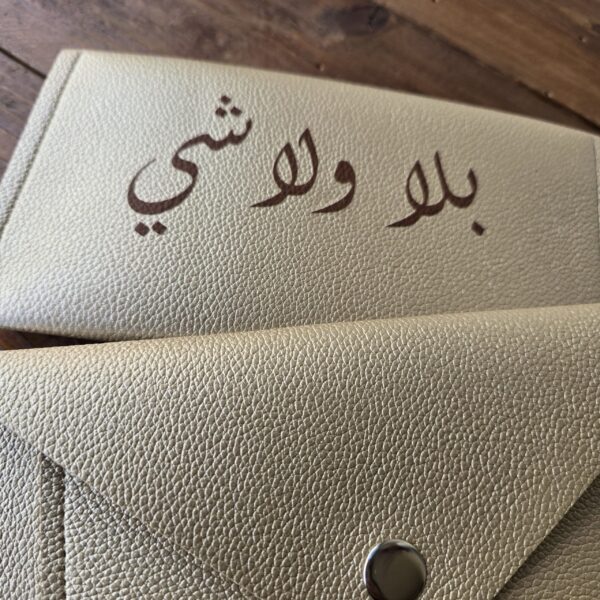 بلا ولا شي